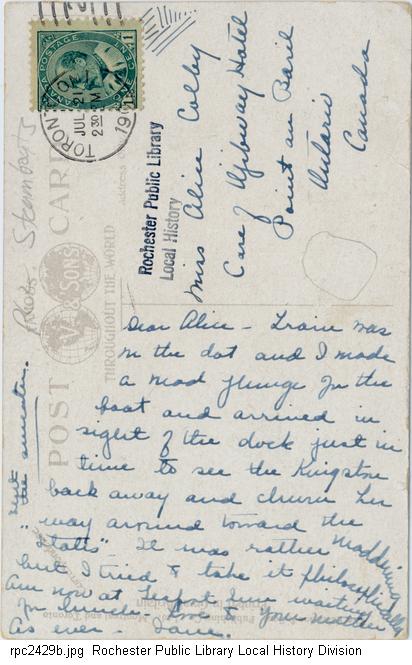 CANADA POSTAGE
TORONTO, ONT
JUL 21
2 30 PM
Miss Alice Colby
Care of Ojibway Hotel
Point au Baril
Ontario
Canada
Rochester Public Library
Local History
POST CARD
& SONS
THROUGHOUT THE WORLD
Dear Alice - Train was
on the dot and I made
a mad plunge for the
boat and arrived in
sight of the dock just in
time to see the Kingston
back away and churn her
way around toward the
"Falls" It was rather maddening
but I tried to take it philosophically
Am now at
waiting
for lunch. Love to your mother
As ever - Jane.
the sweater.
rpc2429b.jpg Rochester Public Library Local History Division